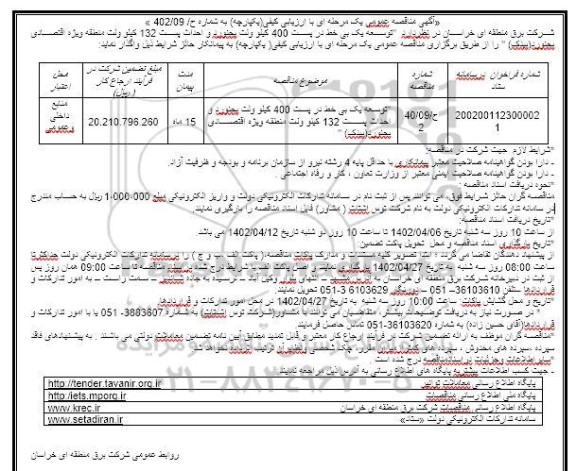 «آگهی مناقصه عمومی یک مرحله ای با ارزیابی کیفی(یکپارچه) به شماره ح/ 402/09 »
شرکت برق منطقه ای خراسان در نظر دارد "توسعه یک بی خط در پست 400 کیلو ولت بجنورد و احداث پست 132 کیلو ولت منطقه ویژه اقتصادی
بجنورد(بیدک) " را از طریق برگزاری مناقصه عمومی یک مرحله ای با ارزیابی کیفی( یکپارچه) به پیمانکار حائز شرایط ذیل واگذار نماید:
شماره فراخوان در سامانه ستاد
شماره مناقصه
موضوع مناقصه
مدت پیمان
مبلغ تضمین شرکت در فرآیند ارجاع کار (ریال)
محل اعتبار
2002001123000021
ح/40/092
"توسعه یک بی خط در پست 400 کیلو ولت بجنورد و
احداث پست 132 کیلو ولت منطقه ویژه اقتصادی
بجنورد(بیدک) "
15 ماه
20.210.796.260
منابع داخلی و عمومی
*شرایط لازم جهت شرکت در مناقصه:
- دارا بودن گواهینامه صلاحیت معتبر پیمانکاری با حداقل پایه 4 رشته نیرو از سازمان برنامه و بودجه و ظرفیت آزاد.
- دارا بودن گواهینامه صلاحیت ایمنی معتبر از وزارت تعاون ، کار و رفاه اجتماعی .
*نحوه دریافت اسناد مناقصه :
مناقصه گران حائز شرایط فوق، می توانند پس از ثبت نام در سامانه تدارکات الکترونیکی دولت و واریز الکترونیکی مبلغ 1-000-000 ریال به حساب مندرج
در سامانه تدارکات الکترونیکی دولت به نام شرکت توس ( مشاور) فایل اسناد مناقصه را بارگیری نمایند.
*تاریخ دریافت اسناد مناقصه:
از ساعت 10 روز سه شنبه تاریخ 1402/04/06 تا ساعت 10 روز دو شنبه تاریخ 1402/04/12 می باشد
*تاریخ بارگذاری اسناد مناقصه و محل تحویل پاکت تضمین:
از پیشنهاد دهندگان تقاضا می گردد : الف) تصویر کلیه مستندات و مدارک پاکات مناقصه( پاکت الف ، ب و ج ) را در سامانه تدارکات الکترونیکی دولت حداکثر تا
ساعت 08:00 روز سه شنبه به تاریخ 1402/04/27 بارگذاری نمایند و اصل پاکت تضمین شرایط درج شده در اسناد مناقصه تا ساعت 09:00 همان روز پس
از ثبت در دبیرخانه شرکت برق منطقه ای خراسان به آدرس
قراردادها – تلفن 36103610-051 – دورنگار 6103629 3-051 تحویل نمایند.
*تاریخ و محل گشایش پاکات: ساعت 10:00 روز سه شنبه به تاریخ 1402/04/27 در محل امور تدارکات و قراردادها.
* در صورت نیاز به دریافت توضیحات بیشتر، متقاضیان می توانند با مشاور(شرکت توس ) به شماره 3883607-051 یا با امور تدارکات و
قراردادها(آقای حسین زاده) به شماره 36103620-051 تماس حاصل فرمایند
*مناقصه گران موظف به ارائه تضمین شرکت در فرآیند ارجاع کار معتبر و قابل تمدید مطابق آیین نامه تضمین معاملات دولتی می باشند . به پیشنهادهای فاقد
سپرده، سپرده های مخدوش ، سپرده های کمتر از میزان مقرر، چک شخصی و نظایر آن ترتیب اثر داده نخواهد شد.
*سایر اطلاعات و جزئیات در اسناد مناقصه درج شده است .
- جهت کسب اطلاعات بیشتر به پایگاه های اطلاع رسانی به آدرس ذیل مراجعه نمایند.
پایگاه اطلاع رسانی معاملات توانیر http://tender.tavanir.org.ir
پایگاه ملی اطلاع رسانی مناقصات http://iets.mporg.ir
پایگاه اطلاع رسانی مناقصات شرکت برق منطقه ای خراسان www.krec.ir
سامانه تدارکات الکترونیکی دولت «ستاد» www.setadiran.ir
روابط عمومی شرکت برق منطقه ای خراسان